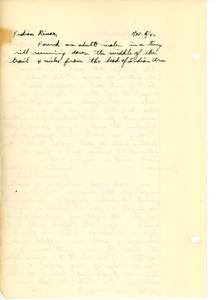 Indian River, Nov. 6/40.
Found an adult male in a tiny
rill running down the middle of the
trail 4 miles from the head of Indian Arm